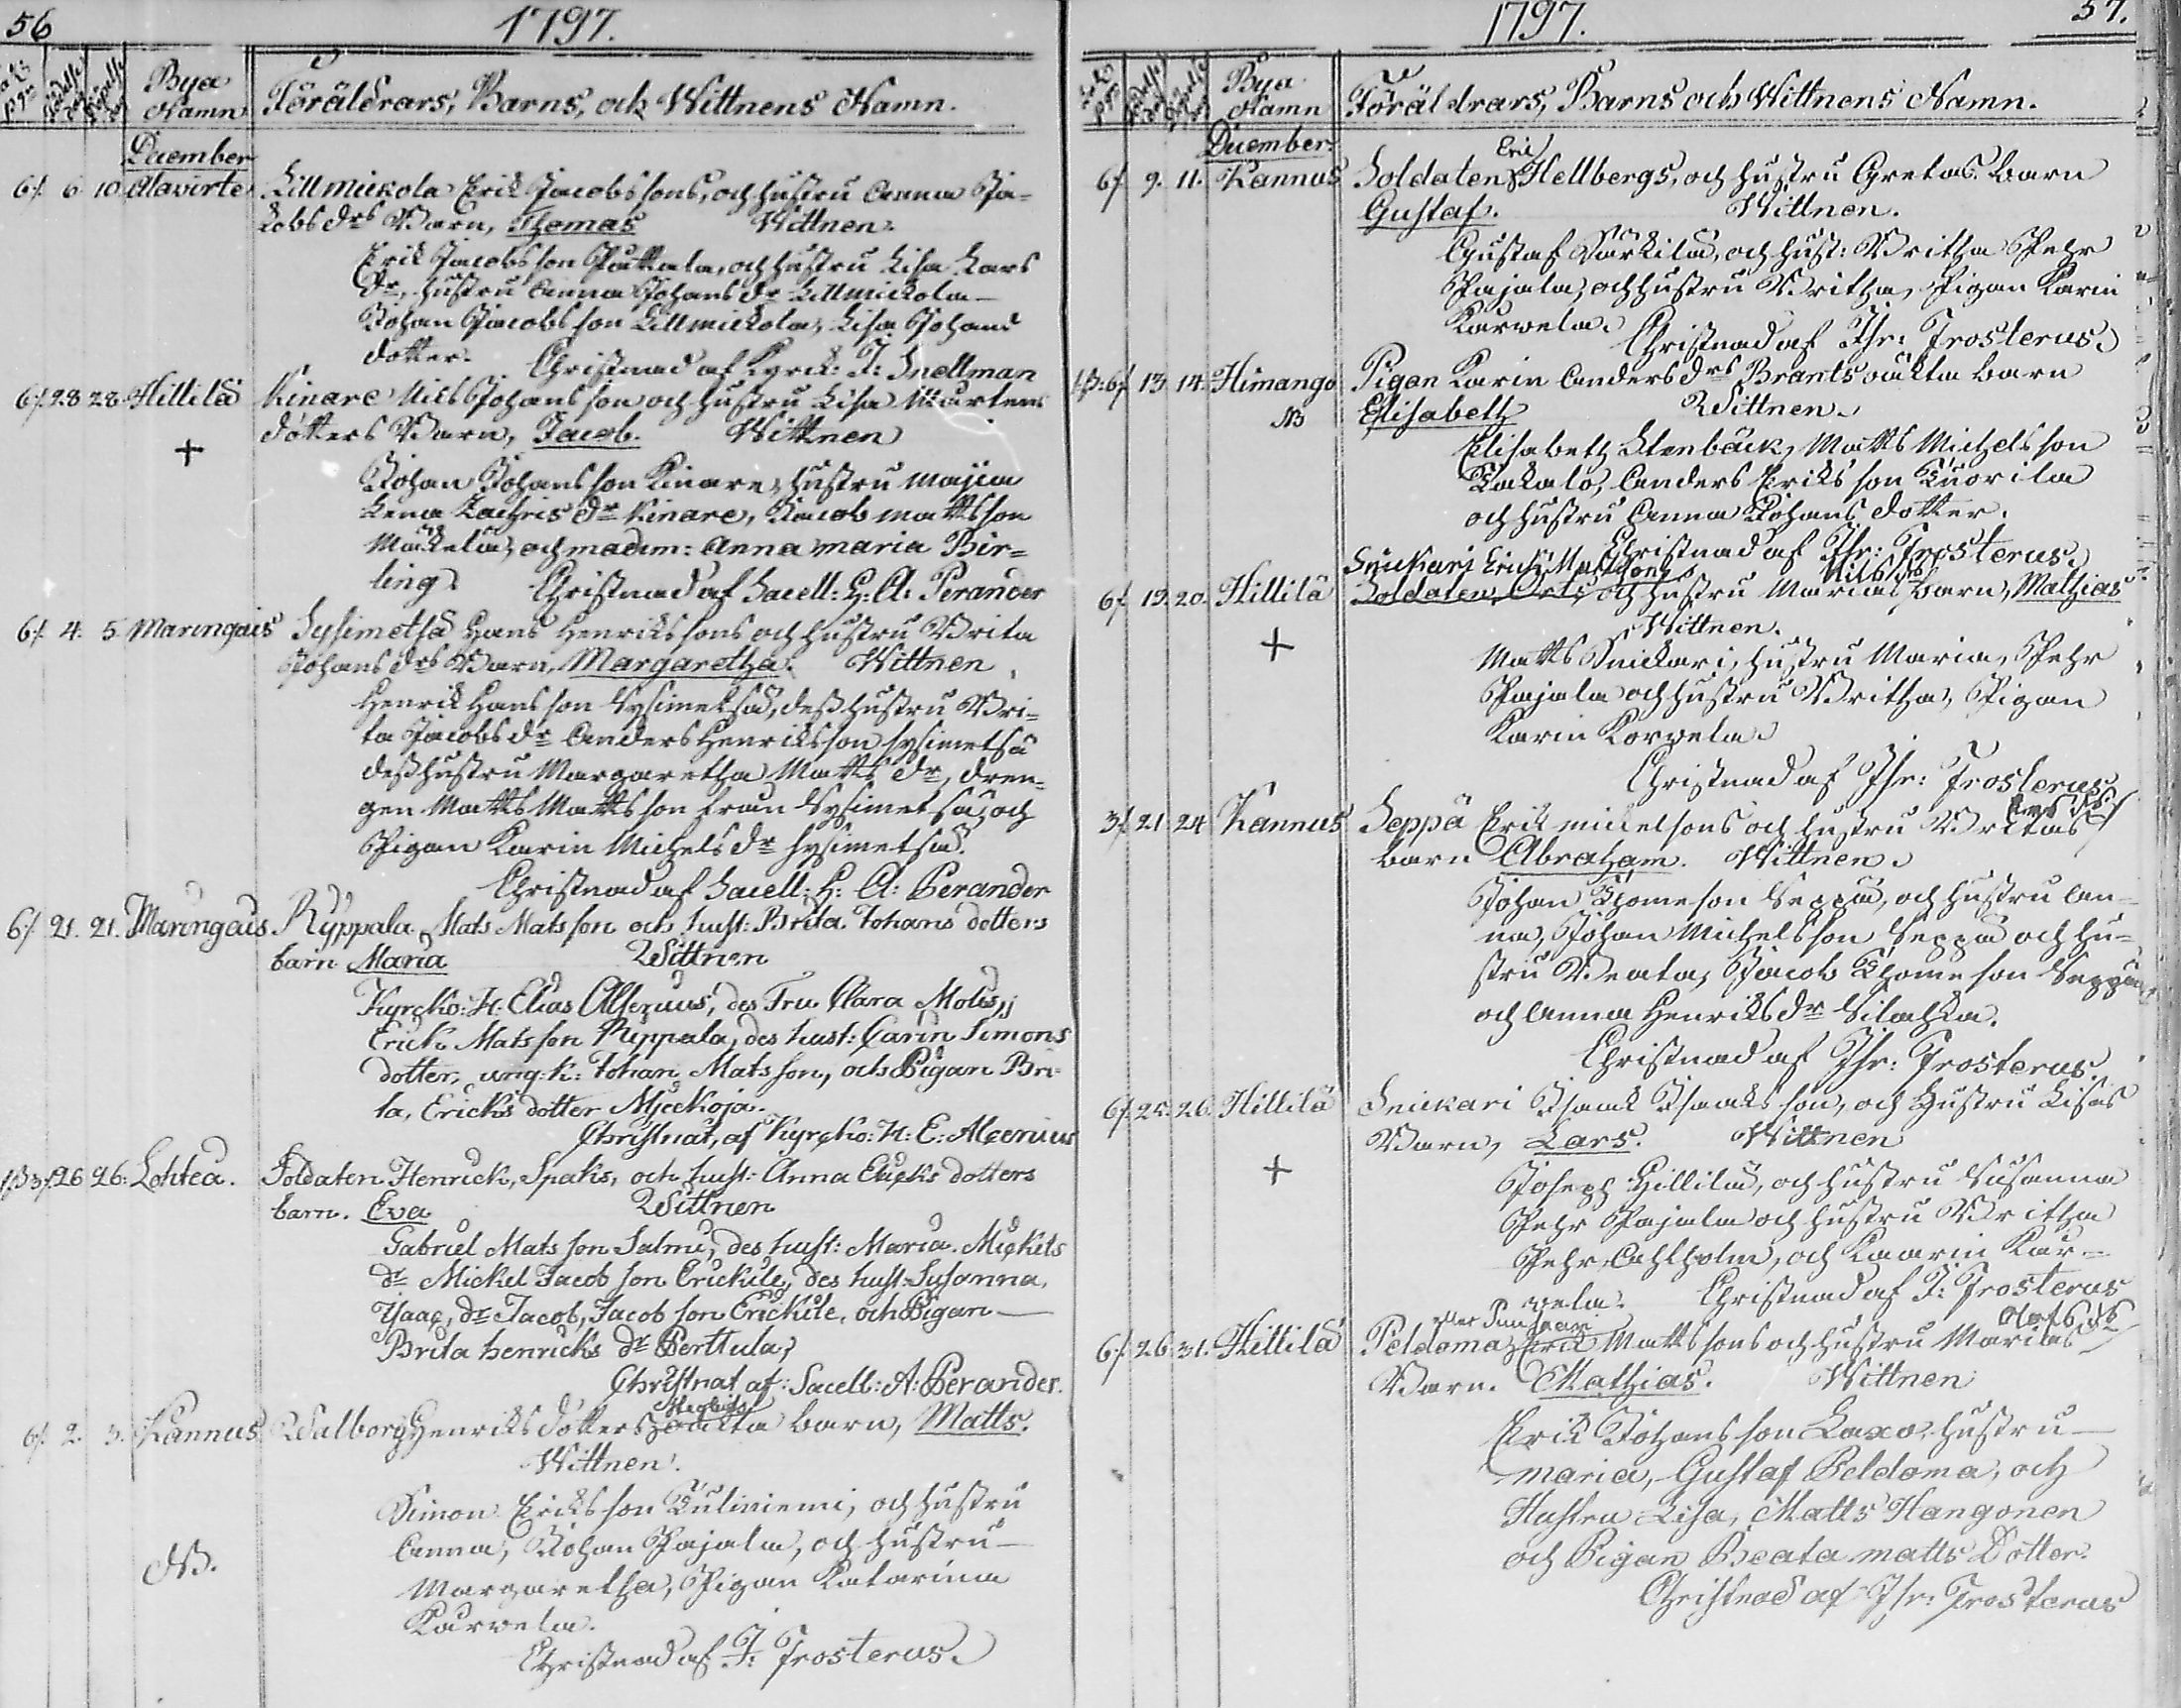 56
1797.
Födelse dag
Döpelse dag
Bya Namn
Föräldrars, Barns, och Wittnens Namn.
December
6/. 6 10. Alavirte Lillmickola Erik Jacobssons, och hustru Anna Ja-
kobs drs Barn, Thomas Wittnen:
Erik Jacobsson Pottala, och hustru Lisa Lars
dr, hustru Anna Johans dr Lillmickola
Johan Jacobsson Lillmickola, Lisa Johans
dotter. Christnad af Kyrck: J: Snellman
6/. 28 28. Hillilä Kinare Nils Johansson och hustru Lisa Mårtens
+ dotters Barn, Jacob. Wittnen
Johan Johansson Kinare, hustru Majca
Lena Zachris dr Kinare, Jacob Mattsson
Mäkelä, och madm: Anna Maria Bir=
ling. Christnad af Sacell: H: A: Perander
6/. 4. 5. Maringais Sysimetsä Hans Henrikssons och hustru Brita
Johans drs Barn, Margaretha. Wittnen
Henrik Hansson Sysimetsä, dess hustru Bri=
ta Jacobs dr Anders Henriksson Sysimetsä
dess hustru Margaretha Matts dr, dren=
gen Matts Mattsson från Sysimetsä, och
Pigan Karin Michels dr Sysimetsä.
Christnad af Sacell: H: A: Perander
6/ 21. 21. Maringais Ryppala Mats Matsson och hust: Brita Johans dotters
barn Maria Wittnen
Kyrcko: H: Elias Alcenius, des Fru Clara Molis,
Erick Matsson Ryppala, des hust: Carin Simons
dotter, ung: k: Johan Matsson, och Pigan Bri-
ta, Ericks dotter Myckoja.
Christnat, af Kyrcko: H: E: Alcenius
26 26: Lohtea. Soldaten Henrick, Spaks, och hust: Anna Ericks dotters
barn. Eva Wittnen
Gabriel Matsson Salmi, des hust: Maria. Mickels
dr Mickel Jacobson Erickile, des hust Susanna,
Ysaac, dr Jacob, Jacobson Erickile, och Pigan
Brita henricks dr Perttula,
Christnat af: Sacell: A: Perander.
6/. 2. 3. Kannus Walborg Henriks dotters oäkta barn, Matts.
Wittnen.
Simon Eriksson Kuliniemi, och hustru
NB. Anna, Johan Pajala, och hustru
Margaretha, Pigan Katarina
Karvela.
Christnad af J: Trosterus.
1797.
57.
Bya Namn
Föräldrars, Barns och Wittnens Namn.
December:
6/ 9. 11. Kannus Soldaten Eric Hellbergs, och hustru Gretas barn
Gustaf. Wittnen.
Gustaf Särkilä, och hust: Britha Pehr
Pajala, och hustru Britha, Pigan Karin
Karvela. Christnad af Jhr: Trosterus.
13. 14. Himango Pigan Karin Anders drs Brants oäkta barn
NB Elisabeth Wittnen.
Elisabeth Stenbäck, Matts Michelsson
Kakalo, Anders Eriksson Tuorila
och hustru Anna Johans dotter.
Christnad af Jhr: Trosterus.
Snickari Erich Mattsons Nils drs
6/ 19. 20. Hillilä Soldaten Orts och hustru Marias barn, Mathias
+ Wittnen.
Matts Snickari, hustru Maria, Pehr
Pajala och hustru Britha, Pigan
Karin Korvela.
Christnad af Jhr: Trosterus
3/ 21. 24 Kannus Seppä Erik Mickelsons och hustru Britas
barn Abraham. Wittnen.
Johan Thomeson Seppä, och hustru An-
na, Johan Michelsson Seppä och hu-
stru Beata, Jacob Thomeson Seppä
och Anna Henriks dr Silahka.
Christnad af Jhr: Trosterus.
6/ 25. 26. Hillilä Snickari Isaak Isaksson, och Hustru Lisas
Barn, Lars. Wittnen
+ Joseph Hillilä, och hustru Susanna
Pehr Pajala och hustru Britha
Pehr Ahlholm, och Kaarin Kar-
vela. Christnad af J: Trosterus
Olofs dr
6/ 26. 31. Hillilä Peldoma Eric Mattssons och hustru Marias
Barn. Mathias. Wittnen
Erik Johansson Laxo, hustru
Maria, Gustaf Peldoma, och
Hustru Lisa, Matts Hangonen
och Pigan Beata Matts Dotter.
Christnad af Jhr: Trosterus